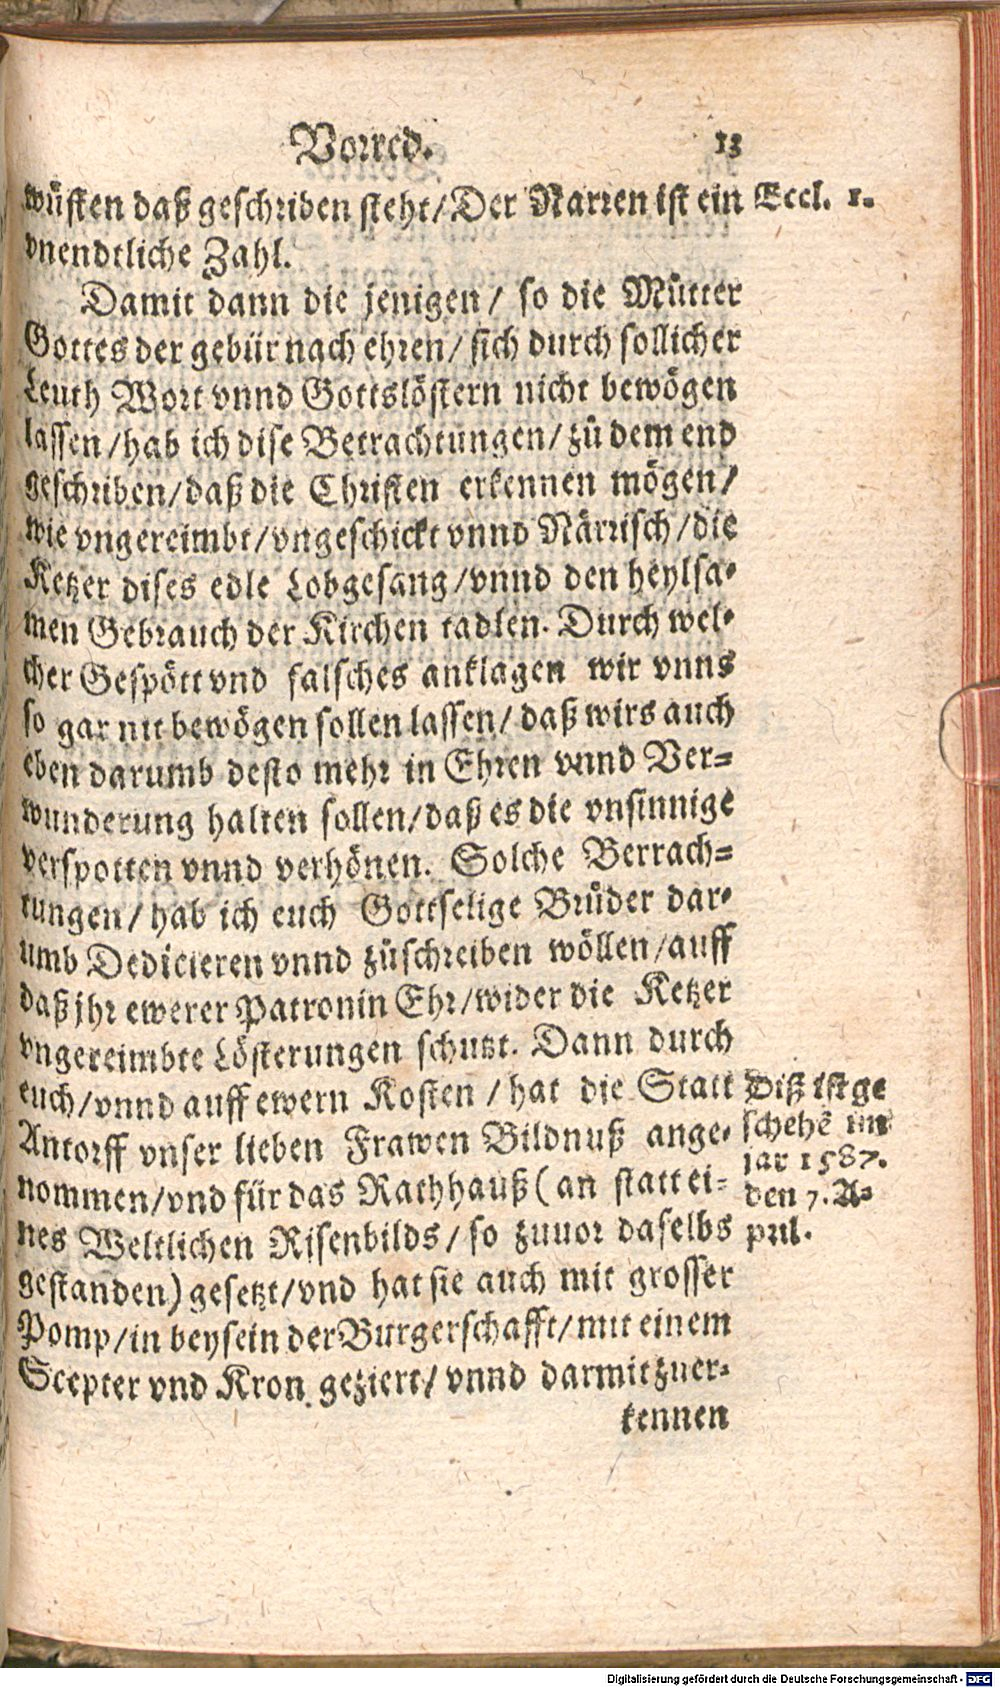 Vorred. 13
wüsten daß geschriben steht/Der Narren ist ein Eccl. 1.
vnendtliche Zahl.
Damit dann die jenigen/ so die Mütter
Gottes der gebür nach ehren/ sich durch sollicher
Leuth Wort vnnd Gottslöstern nicht bewögen
lassen/hab ich dise Betrachtungen/zů dem end
geschriben/daß die Christen erkennen mögen/
wie vngereimbt/vngeschickt vnnd Närrisch/die
Ketzer dises edle Lobgesang/vnnd den heylsa-
men Gebrauch der Kirchen tadlen. Durch wel-
cher Gespött vnd falsches anklagen wir vnns
so gar nit bewögen sollen lassen/ daß wirs auch
eben darumb desto mehr in Ehren vnnd Ver-
wunderung halten sollen/daß es die vnsinnige
verspotten vnnd verhönen. Solche Betrach-
tungen/ hab ich euch Gottselige Brůder dar-
umb Dedicieren vnnd zůschreiben wöllen/auff
daß jhr ewerer Patronin Ehr/wider die Ketzer
vngereimbte Lösterungen schutzt. Dann durch
euch/vnnd auff ewern Kosten/ hat die Statt
Antorff vnser lieben Frawen Bildnuß ange-
nommen/vnd für das Rathhauß (an statt ei-
nes Weltlichen Risenbilds/ so zuuor daselbs
gestanden) gesetzt/vnd hat sie auch mit grosser
Pomp/in beysein der Burgerschafft/mit einem
Scepter vnd Kron geziert/ vnnd darmit zuer-
kennen
Diß ist ge
schehē im
jar 1587.
den 7. A-
pril.
Digitalisierung gefördert durch die Deutsche Forschungsgemeinschaft - DFG